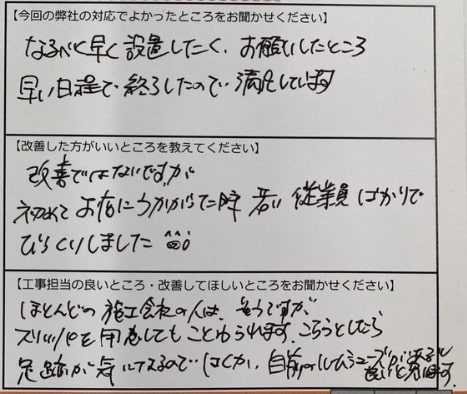 【今回の弊社の対応でよかったところをお聞かせください】
なるべく早く設置したく、お願いしたところ
早い日程で終了したので満足しています
【改善した方がいいところを教えてください】
改善ではないですが
初めてお店にうかがった時 若い従業員ばかりで
びっくりしました
【工事担当の良いところ・改善してほしいところをお聞かせください】
ほとんどの施工会社の人は、そうですが、
スリッパを用意してもことわられます。こちらとしたら
足跡が気になるのではくか、自前のルームシューズがあると
良いと思います。